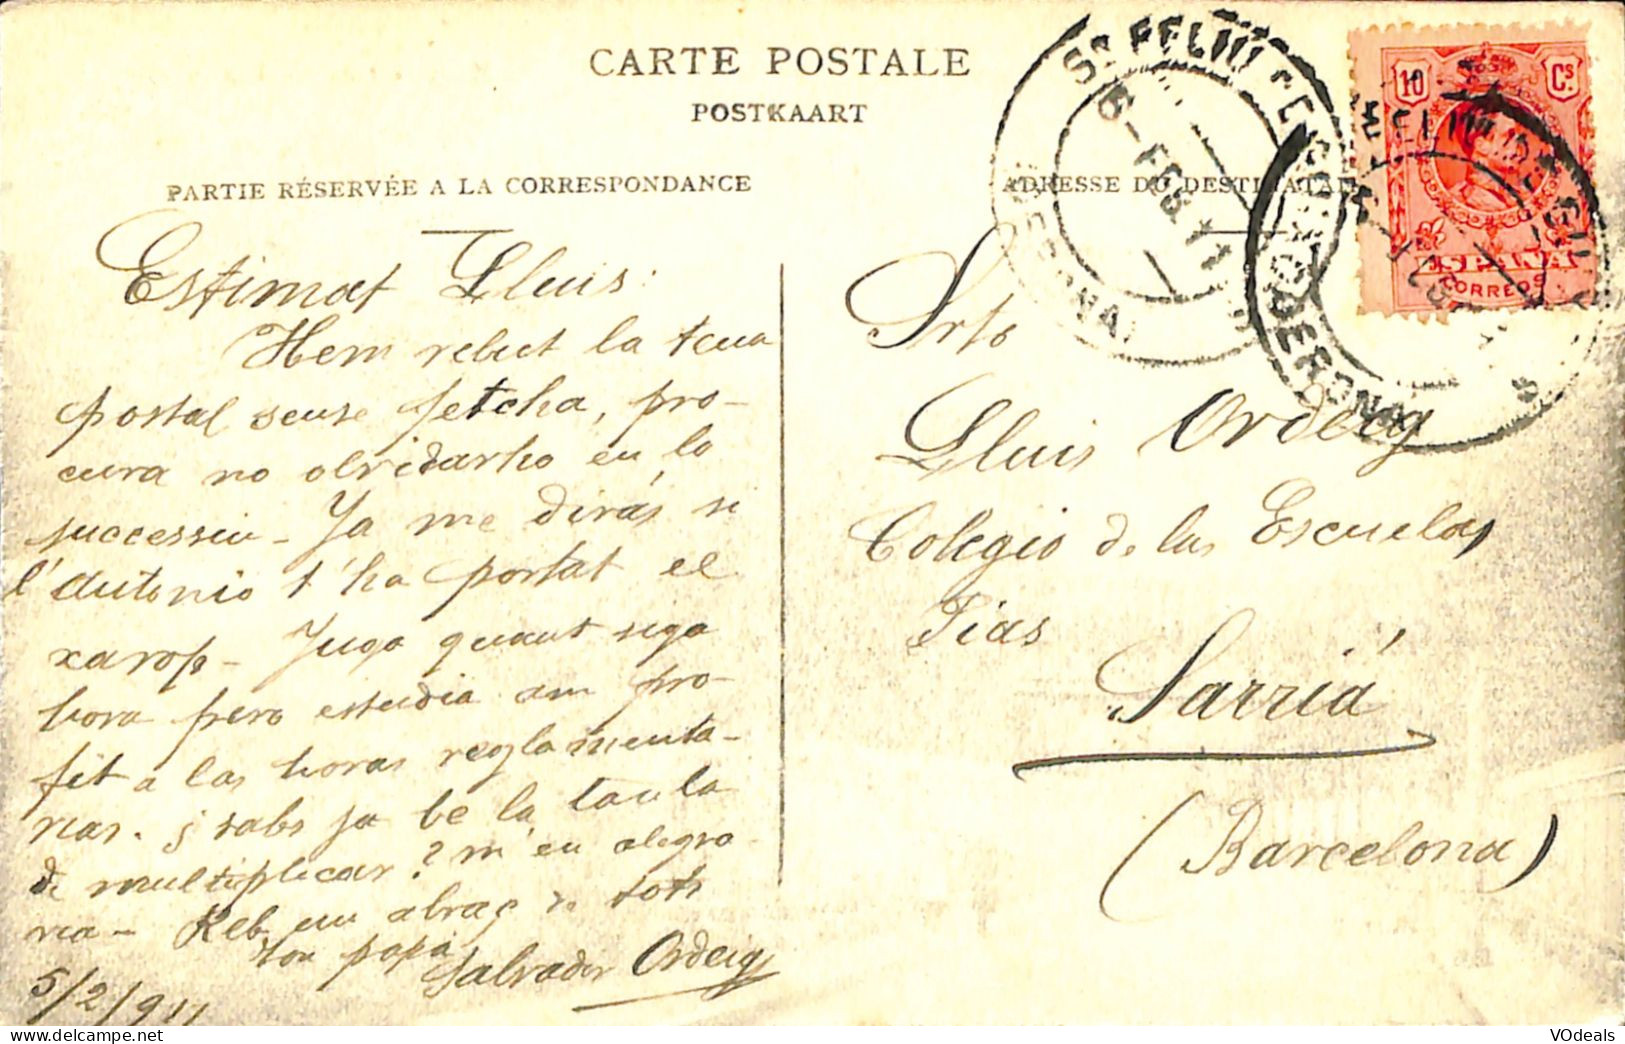 CARTE POSTALE
POSTKAART
PARTIE RÉSERVÉE A LA CORRESPONDANCE
Estimat Lluis:
Hem rebut la teua
postal sense fetcha, pro-
cura no olvidarho en lo
successiu - Ja me dirás si
l'Antonio t'ha portat el
xarop - Juga quant siga
hora pero estudia am pro-
fit a las horas reglamenta-
rias. ¿ sabs ja be la taula
de multiplicar? m'en alegra-
ria - Reb un abraç de tots
ton papá
Salvador Ordeig
5/2/911
ADRESSE DU DESTINATAI
Srto
Lluis Ordeig
Colegio de las Escuelas
Pias
Sarriá
(Barcelona)
Sn FELIU
6-FEB 11
GERONA
10 Cs
ESPAÑA
CORREOS
VOdeals